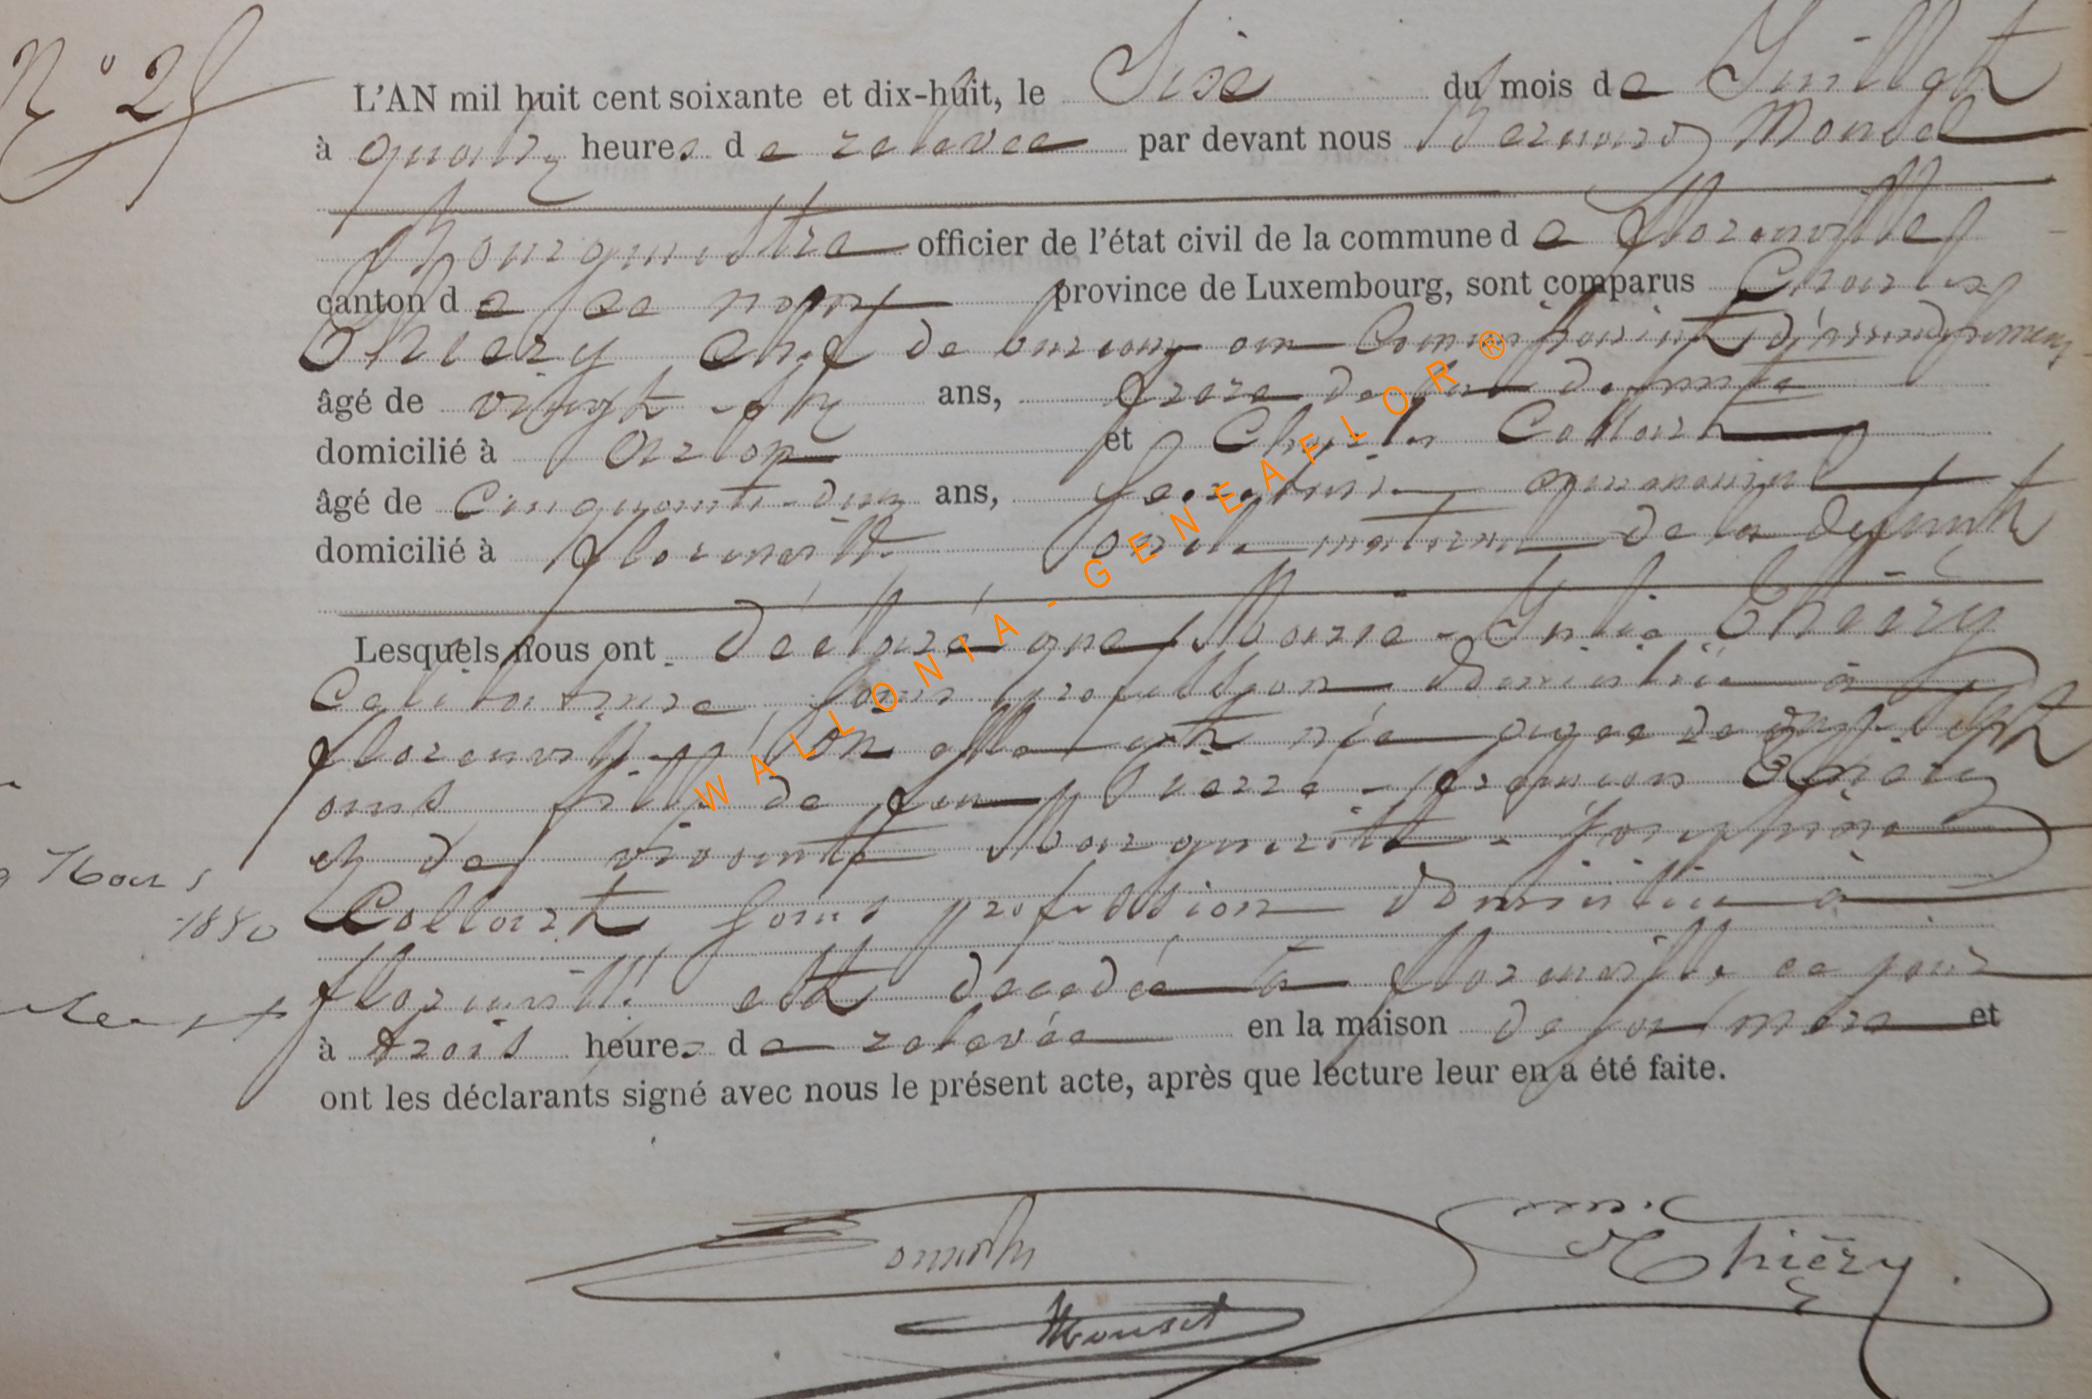 N° 25
L'AN mil huit cent soixante et dix-huit, le Sixe du mois de Juillet
à quatre heures de relevée par devant nous Bernard Mousel
Bourgmestre officier de l'état civil de la commune de Florenville
canton de ce nom province de Luxembourg, sont comparus Charles
Thiery chef de bureau au Commissariat d'arrondissement
âgé de vingt ans, frère de la défunte
domicilié à Arlon et Charles Collart
âgé de Cinquante-deux ans, Secrétaire communal
domicilié à florenville oncle maternel de la défunte
Lesquels nous ont déclaré que Marie-Julie Thiéry
Célibataire, sans profession domiciliée à
florenville où elle est née agée de vingt-sept
ans fille de feu Pierre-françois Thiéry
et de vivante Marguerite-Joséphine
Collart sans profession domiciliée à
florenville est décédée à florenville ce jour
à trois heures de relevée en la maison de sa mère et
ont les déclarants signé avec nous le présent acte, après que lecture leur en a été faite.
Mars
1880
Thiéry.
Mousel
WALLONIA - GENEAFLOR®